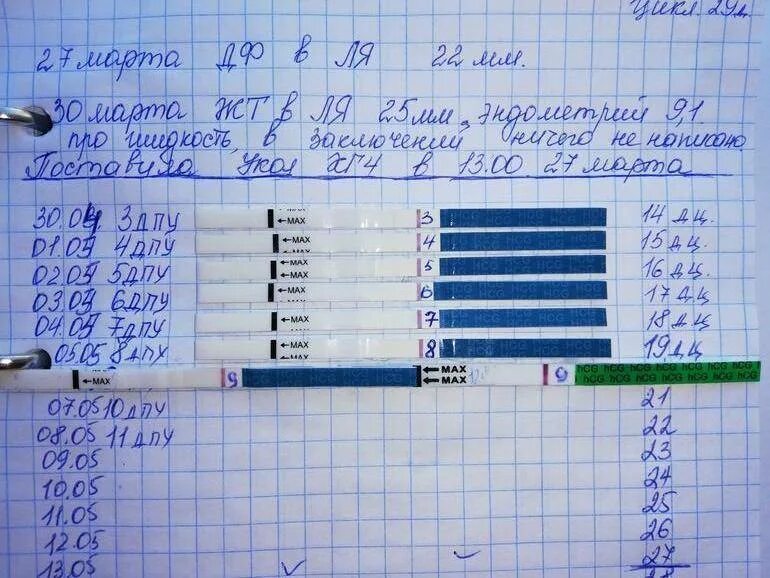 Цикл 29д
27 марта ДФ в ЛЯ 22 мм.
30 марта ЖТ в ЛЯ 25мм, эндометрий 9,1
про жидкость, в заключений ничего не написано
Поставила Укол ХГЧ в 13.00 27 марта
30.04. 3ДПУ ←MAX 3 14 д.ц.
01.04 4ДПУ ←MAX 4 15 д.ц.
02.04 5ДПУ ←MAX 5 16 д.ц.
03.04 6ДПУ ←MAX 6 17 д.ц
04.04 7ДПУ ←MAX 7 18 д.ц
05.05 8ДПУ ←MAX 8 19 д.ц
←MAX 9 ←MAX 9 hCG hCG hCG hCG hCG hCG
←MAX hCG hCG hCG hCG hCG hCG
07.05 10 ДПУ 21
08.05 11 ДПУ 22
09.05 23
10.05 24
11.05 25
12.05 26
13.05 27
28